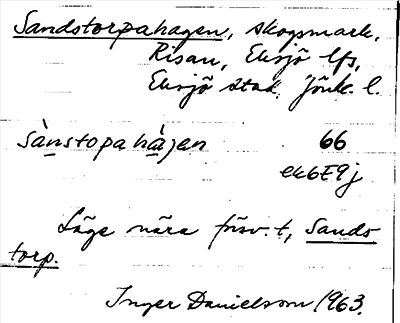 Sandstorpahagen, skogsmark,
Risan, Eksjö lfs,
Eksjö stad. Jönk. l.
sànstopahàgen 66
ek6E9j
Läge nära försv. t, Sands
torp.
Inger Danielsson 1963.